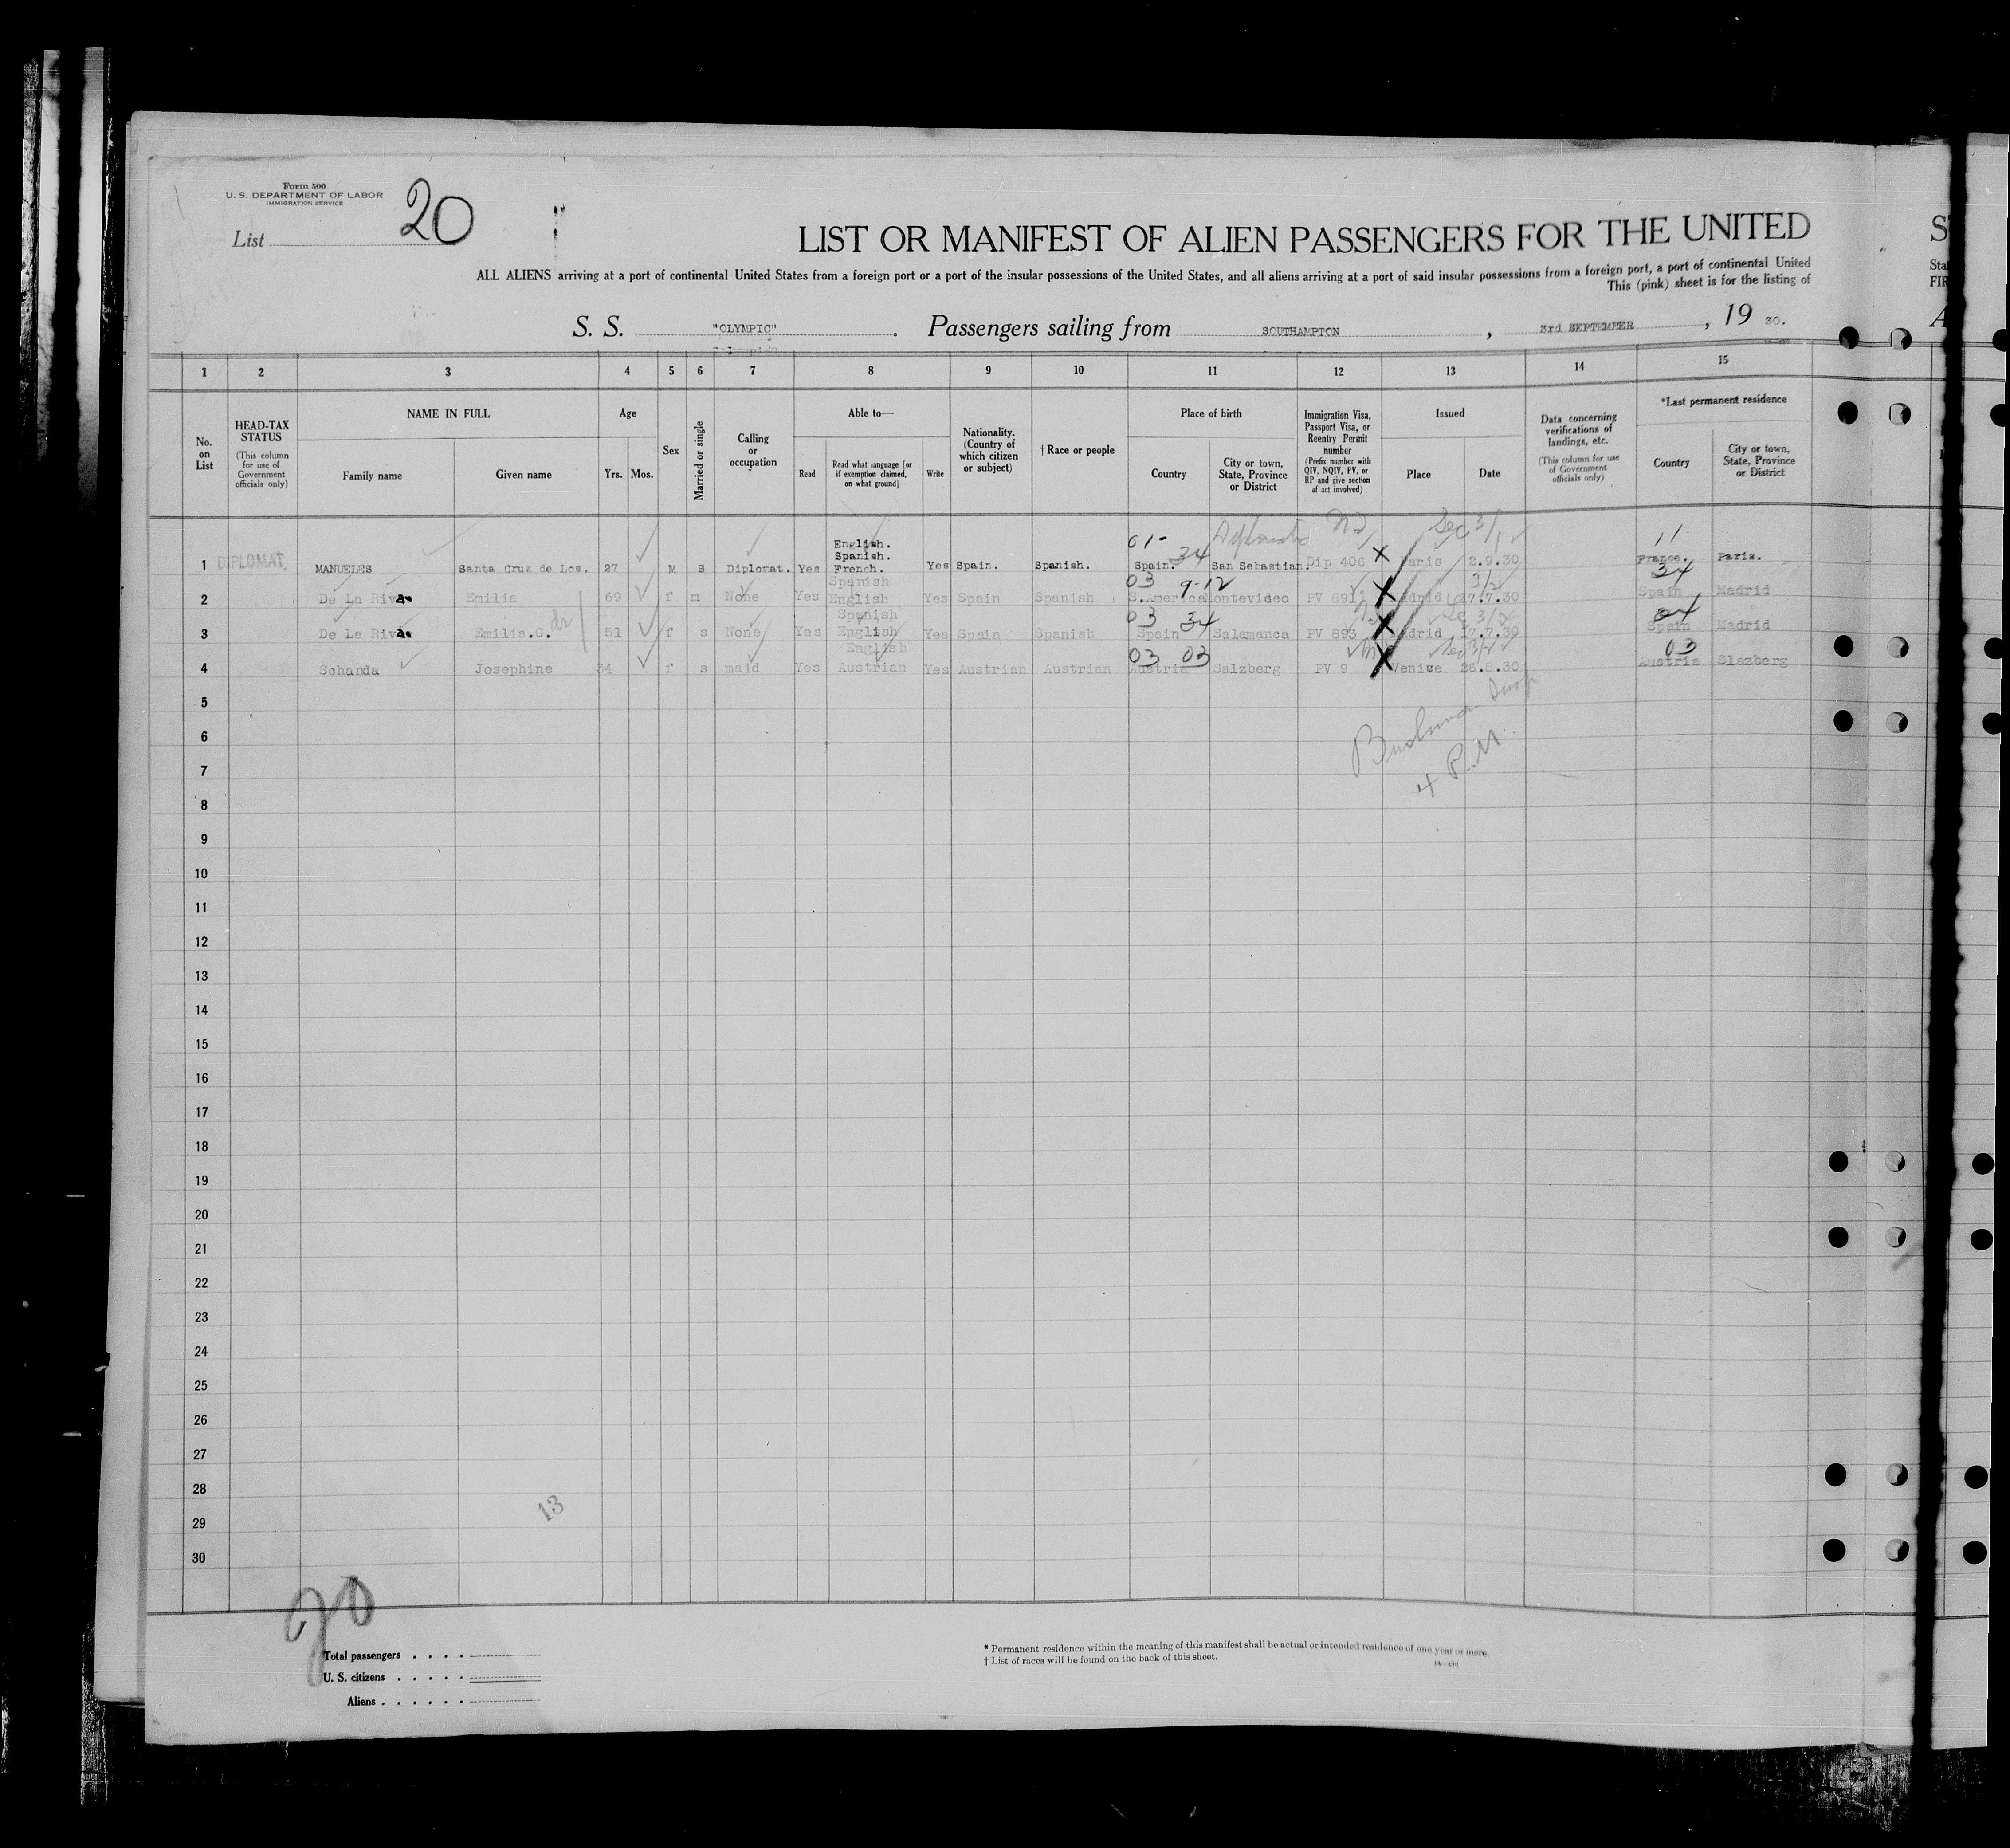 Form 500
U. S. DEPARTMENT OF LABOR
IMMIGRATION SERVICE
List 20
LIST OR MANIFEST OF ALIEN PASSENGERS FOR THE UNITED
ALL ALIENS arriving at a port of continental United States from a foreign port or a port of the insular possessions of the United States, and all aliens arriving at a port of said insular possessions from a foreign port, a port of continental United
This (pink) sheet is for the listing of
S. S. "OLYMPIC" . Passengers sailing from SOUTHAMPTON , 3rd SEPTEMBER , 19 30.
1 2 3 4 5 6 7 8 9 10 11 12 13 14 15
No. on List
HEAD-TAX STATUS
(This column for use of Government officials only)
NAME IN FULL
Family name
Given name
Age
Yrs. Mos.
Sex
Married or single
Calling or occupation
Able to—
Read
Read what language [or if exemption claimed, on what ground]
Write
Nationality. (Country of which citizen or subject)
† Race or people
Place of birth
Country
City or town, State, Province or District
Immigration Visa, Passport Visa, or Reentry Permit number
(Prefix number with QIV, NQIV, PV, or RP and give section of act involved)
Issued
Place
Date
Data concerning verifications of landings, etc.
(This column for use of Government officials only)
*Last permanent residence
Country
City or town, State, Province or District
1 DIPLOMAT. MANUELES Santa Cruz de Los. 27 M S Diplomat. Yes English. Spanish. French. Yes Spain. Spanish. 01- 34 Spain. San Sebastian. Dip 406 X Paris 2.9.30 11 France. Paris.
2 De La Riva Emilia 69 f m None Yes Spanish English Yes Spain Spanish 03 9-12 S.America Montevideo PV 891 X Madrid 17.7.30 34 Spain Madrid
3 De La Riva Emilia.G. 51 f s None Yes Spanish English Yes Spain Spanish 03 34 Spain Salamanca PV 893 X Madrid 17.7.30 34 Spain Madrid
4 Schanda Josephine 34 f s maid Yes English Austrian Yes Austrian Austrian 03 03 Austria Salzberg PV 9 X Venice 26.8.30 03 Austria Slazberg
5
6
7
8
9
10
11
12
13
14
15
16
17
18
19
20
21
22
23
24
25
26
27
28
29
30
13
20
Total passengers . . . .
U. S. citizens . . . . .
Aliens . . . . . .
* Permanent residence within the meaning of this manifest shall be actual or intended residence of one year or more.
† List of races will be found on the back of this sheet.